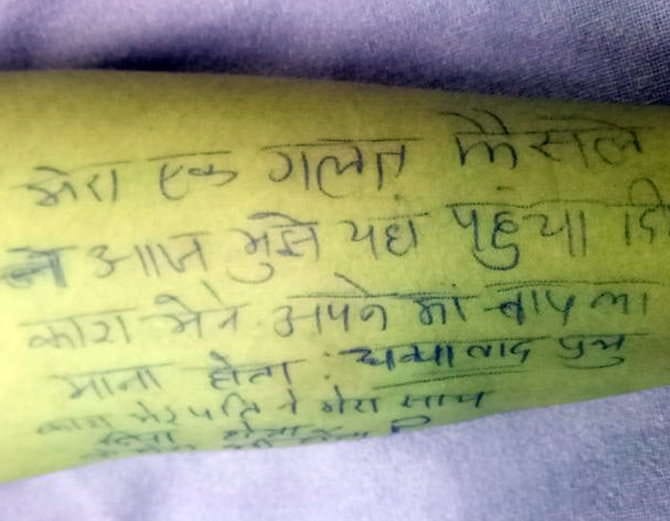 मेरा एक गलत फैसले
ने आज मुझे यहां पहुंचा दि
काश मैने अपने मां बाप का
माना होता : धन्यावाद प्रभु
काश मेरे पति ने मेरा साथ
दिया होता